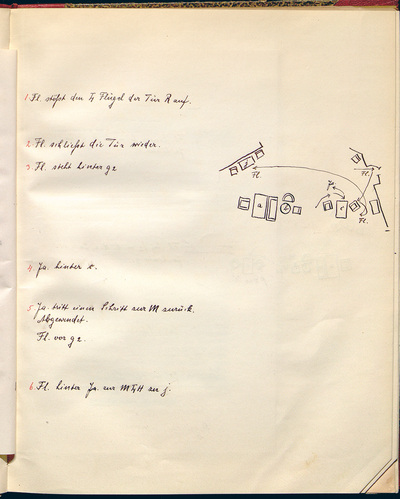 1. Fl. stößt den Flügel der Tür R auf.
2. Fl. schließt die Tür wieder.
3. Fl. steht hinter g2
Fl.
Fl.
Ja.
a
b
c
Fl.
4. Ja. hinter c.
5. Ja. tritt einen Schritt zur M zurück.
Abgewendet.
Fl. vor g2.
6. Fl. hinter Ja. zur MhH zu j.